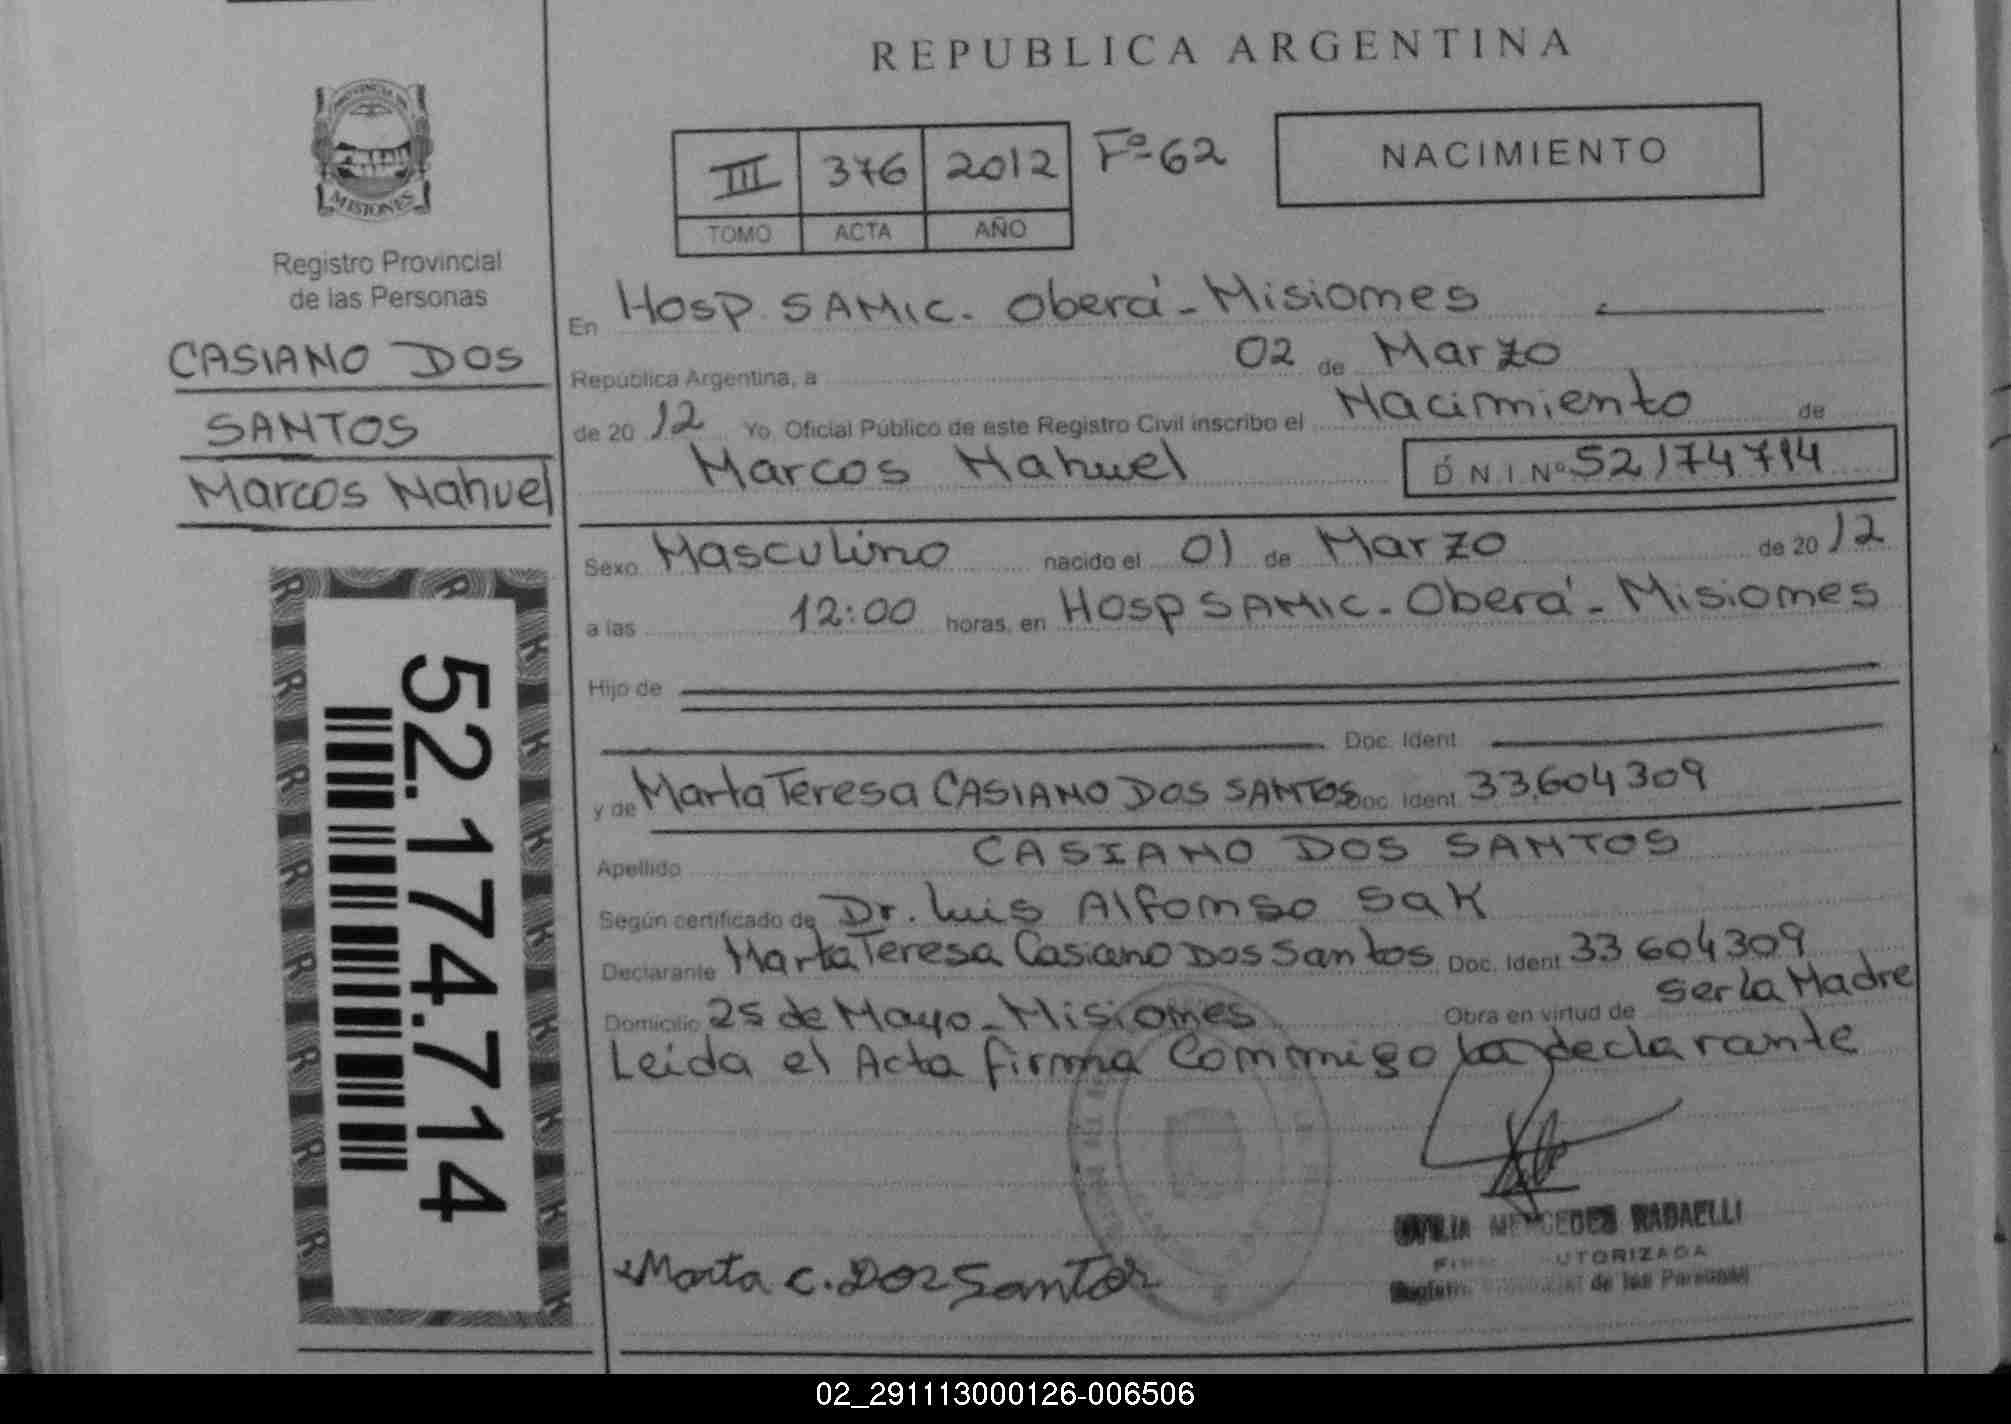 REPUBLICA ARGENTINA
PROVINCIA DE
MISIONES
Registro Provincial
de las Personas
CASIANO DOS
SANTOS
Marcos Nahuel
52.174.714
III 376 2012 Fº 62
TOMO ACTA AÑO
NACIMIENTO
En Hosp. SAMIC. Oberá - Misiones
República Argentina, a 02 de Marzo
de 2012 Yo, Oficial Público de este Registro Civil inscribo el Nacimiento de
Marcos Nahuel D N I Nº 52174714
Sexo Masculino nacido el 01 de Marzo de 2012
a las 12:00 horas, en Hosp SAMIC - Oberá - Misiones
Hijo de
Doc. Ident
y de Marta Teresa CASIANO DOS SANTOS Doc. Ident. 33.604309
Apellido CASIANO DOS SANTOS
Según certificado de Dr. Luis Alfonso Sak
Declarante Marta Teresa Casiano Dos Santos Doc. Ident 33 604309
Domicilio 25 de Mayo - Misiones Obra en virtud de Ser La Madre
Leida el Acta firma Conmigo La declarante
Marta C. Dos Santos
MERCEDES RABAELLI
AUTORIZADA
de las Personas
02_291113000126-006506